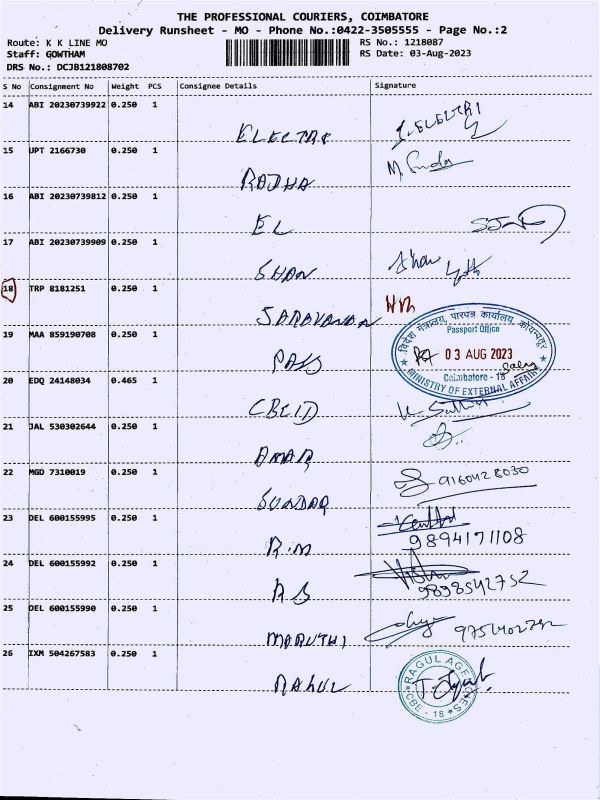 THE PROFESSIONAL COURIERS, COIMBATORE
Delivery Runsheet - MO - Phone No.:0422-3505555 - Page No.:2
Route: K K LINE MO
RS No.: 1218087
Staff: GOWTHAM
RS Date: 03-Aug-2023
DRS No.: DCJB121808702
S No Consignment No Weight PCS Consignee Details Signature
14 ABI 20230739922 0.250 1
ELECTRI
I-ELECTRI
15 UPT 2166730 0.250 1
RADHA
16 ABI 20230739812 0.250 1
EL
17 ABI 20230739909 0.250 1
SHAN
18 TRP 8181251 0.250 1
SARAVANAN
19 MAA 859190708 0.250 1
PASS
विदेश मंत्रालय, पारपत्र कार्यालय, कोयम्बतूर
Passport Office
03 AUG 2023
Coimbatore - 18
MINISTRY OF EXTERNAL AFFAIRS
20 EDQ 24148034 0.465 1
CBCID
21 JAL 530302644 0.250 1
AMAR
22 MGD 7310019 0.250 1
SUNDAR
9160428030
23 DEL 600155995 0.250 1
R.M
9894171108
24 DEL 600155992 0.250 1
AS
9898542752
25 DEL 600155990 0.250 1
MARUTHI
26 IXM 504267583 0.250 1
RAHUL
RAGUL AGENCIES
CBE - 18